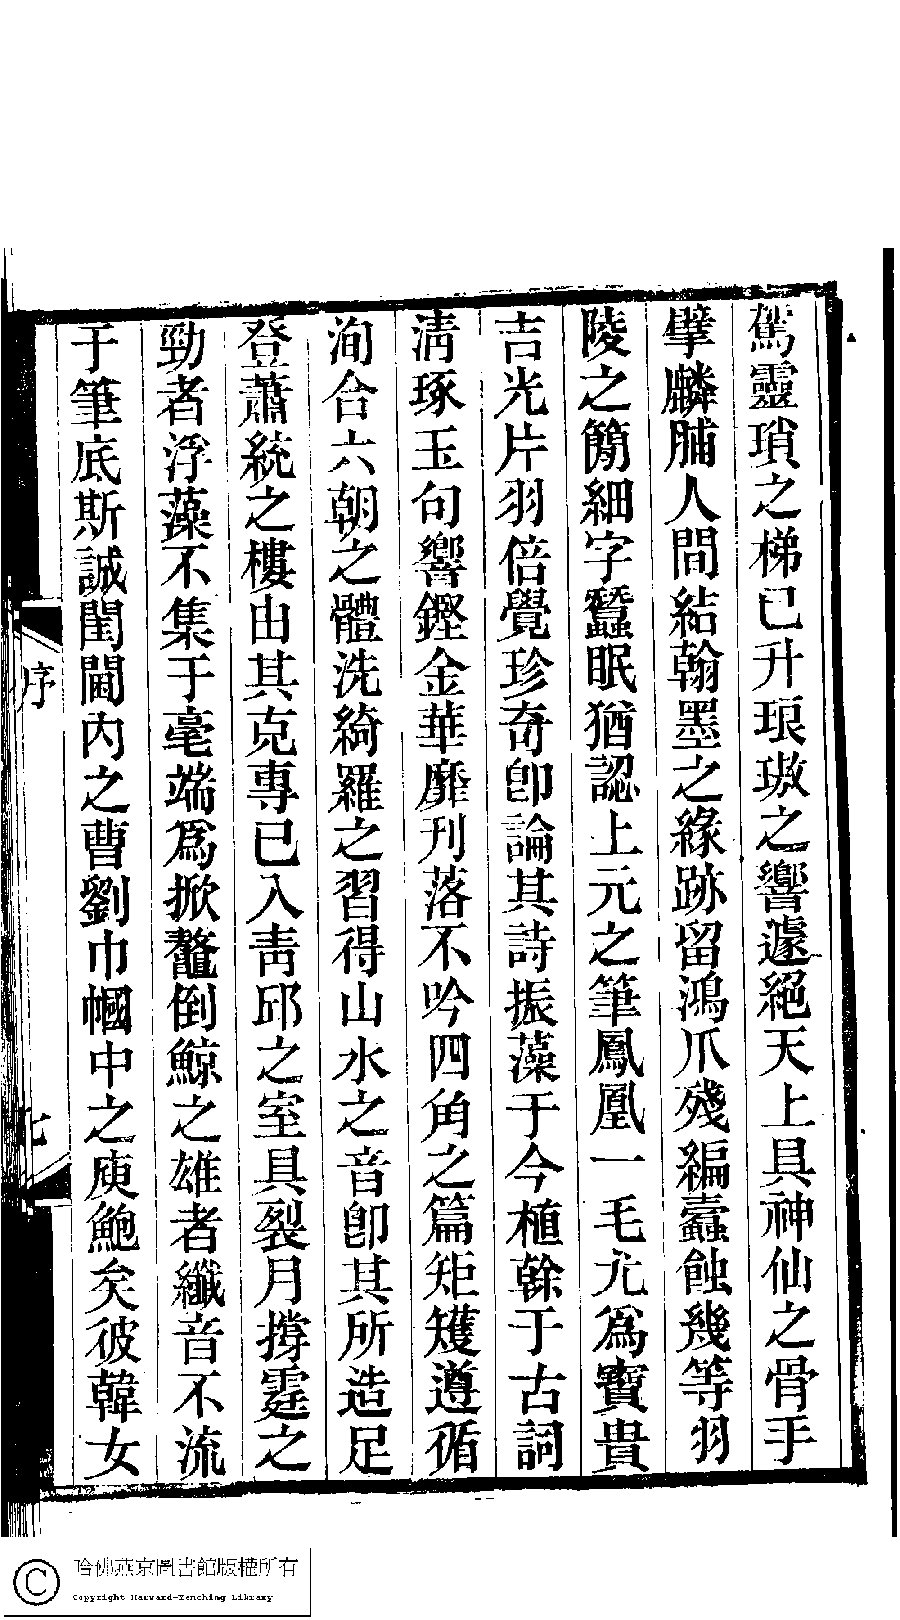 駕靈瑣之梯已升琅璈之響遽絕天上具神仙之骨手
擘麟脯人間結翰墨之緣跡留鴻爪殘編蠹蝕幾等羽
陵之簡細字蠶眠猶認上元之筆鳳凰一毛尤為寶貴
吉光片羽倍覺珍奇卽論其詩振藻于今植榦于古詞
淸琢玉句響鏗金華靡刋落不吟四角之篇矩矱遵循
洵合六朝之體洗綺羅之習得山水之音卽其所造足
登蕭統之樓由其克專已入靑邱之室具裂月撐霆之
勁者浮藻不集于毫端為掀鼇倒鯨之雄者纖音不流
于筆底斯誠閨閫內之曹劉巾幗中之庾鮑矣彼韓女
序
七
哈佛燕京圖書館版權所有
Copyright Harvard-Yenching Library